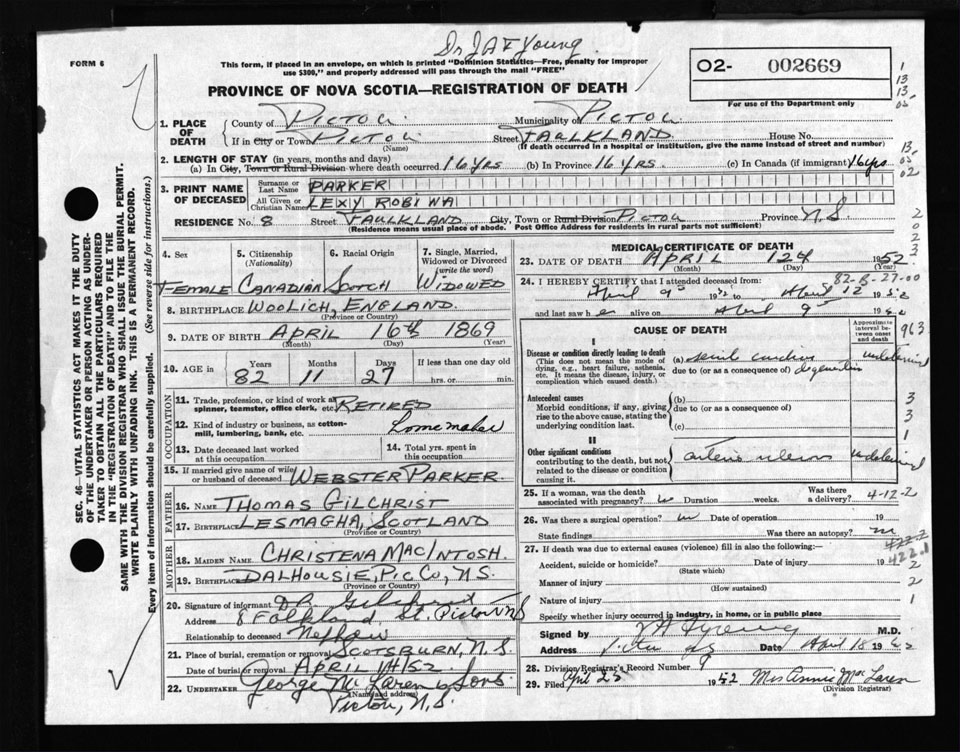 Dr J A F Young
FORM 6
This form, if placed in an envelope, on which is printed "Dominion Statistics—Free, penalty for improper
use $300," and properly addressed will pass through the mail "FREE"
O2- 002669
For use of the Department only
PROVINCE OF NOVA SCOTIA—REGISTRATION OF DEATH
1. PLACE OF DEATH
County of PICTOU Municipality of PICTOU
If in City or Town PICTOU Street FAULKLAND House No.
(Name) (If death occurred in a hospital or institution, give the name instead of street and number)
2. LENGTH OF STAY (in years, months and days)
(a) In City, Town or Rural Division where death occurred 16 YRS (b) In Province 16 YRS. (c) In Canada (if immigrant) 16 yrs
3. PRINT NAME OF DECEASED
Surname or Last Name PARKER
All Given or Christian Names LEXY ROBINA
RESIDENCE No. 8 Street FAULKLAND City, Town or Rural Division PICTOU Province N.S
(Residence means usual place of abode. Post Office Address for residents in rural parts not sufficient)
4. Sex FEMALE
5. Citizenship (Nationality) CANADIAN
6. Racial Origin SCOTCH
7. Single, Married, Widowed or Divorced (write the word) WIDOWED
8. BIRTHPLACE WOOLICH, ENGLAND.
(Province or Country)
9. DATE OF BIRTH APRIL 16th 1869
(Month) (Day) (Year)
10. AGE in Years 82 Months 11 Days 27 If less than one day old hrs. or min.
OCCUPATION
11. Trade, profession, or kind of work as spinner, teamster, office clerk, etc. RETIRED
12. Kind of industry or business, as cotton-mill, lumbering, bank, etc. Homemaker
13. Date deceased last worked at this occupation
14. Total yrs. spent in this occupation
15. If married give name of wife or husband of deceased WEBSTER PARKER.
FATHER
16. NAME THOMAS GILCHRIST
17. BIRTHPLACE LESMAGHA, SCOTLAND
(Province or Country)
MOTHER
18. MAIDEN NAME CHRISTENA MACINTOSH.
19. BIRTHPLACE DALHOUSIE, PIC CO, N.S.
(Province or Country)
20. Signature of informant D B Gilchrist
Address 8 Falkland St. Pictou NS
Relationship to deceased Nephew
21. Place of burial, cremation or removal SCOTSBURN, N.S.
Date of burial or removal APRIL 14/52.
22. UNDERTAKER George McLaren & Sons
(Name and address)
Pictou, N.S.
MEDICAL CERTIFICATE OF DEATH
23. DATE OF DEATH APRIL 12th 1952
(Month) (Day) (Year)
82-B-27-00
24. I HEREBY CERTIFY that I attended deceased from:
April 9 1952 to April 12 1952
and last saw her alive on April 9 1952
CAUSE OF DEATH
Approximate interval between onset and death
I
Disease or condition directly leading to death
(This does not mean the mode of dying, e.g., heart failure, asthenia, etc. It means the disease, injury, or complication which caused death.)
(a) senile cardiac
due to (or as a consequence of) degeneration
Antecedent causes
Morbid conditions, if any, giving rise to the above cause, stating the underlying condition last.
(b)
due to (or as a consequence of)
(c)
II
Other significant conditions
contributing to the death, but not related to the disease or condition causing it.
25. If a woman, was the death associated with pregnancy? Duration weeks. Was there a delivery?
4-12-2
26. Was there a surgical operation? Date of operation 19
State findings Was there an autopsy?
27. If death was due to external causes (violence) fill in also the following:—
Accident, suicide or homicide? Date of injury 19
(State which)
Manner of injury
(How sustained)
Nature of injury
Specify whether injury occurred in industry, in home, or in public place
422.1
Signed by M.D.
Address Pictou NS Date April 18 1952
28. Division Registrar's Record Number 9
29. Filed April 23 1952 Mrs Annie MacLaren
(Division Registrar)
SEC. 46—VITAL STATISTICS ACT MAKES IT THE DUTY
OF THE UNDERTAKER OR PERSON ACTING AS UNDER-
TAKER TO OBTAIN ALL THE PARTICULARS REQUIRED
IN THE "REGISTRATION OF DEATH" AND TO FILE THE
SAME WITH THE DIVISION REGISTRAR WHO SHALL ISSUE THE BURIAL PERMIT.
WRITE PLAINLY WITH UNFADING INK. THIS IS A PERMANENT RECORD.
Every item of information should be carefully supplied. (See reverse side for instructions.)